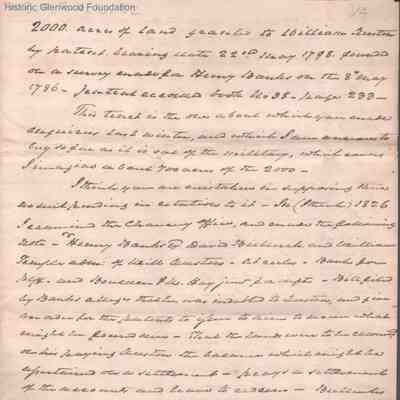 Historic Glenwood Foundation
2000 acres of Land granted to William Austin
by patent bearing date 22nd May 1798. founded
on a survey made for Henry Banks on the 8th May
1786 - patent recorded book No 38 - page 233 -
This tract is the one about which you made
enquiries last winter, and which I am anxious to
buy so far as it is out of the military, which covers
I imagine about 700 acres of the 2000 -
I think you are mistaken in supposing there
a suit pending in relation to it - In (March) 1826
I examined the Chancery Office, and made the following
note - Henry Banks David Bullock and William
Temple adm. of Austin - Banks for
plf. and Bouldin just - Bill filed
by Banks alleges that he was indebted to Austin, and gave
an order for the patents to issue to him to secure what
might be found due - that the lands were to be
on his paying Austin the balance which might be
ascertained on a settlement - prays a settlement
of the accounts and leave to redeem -